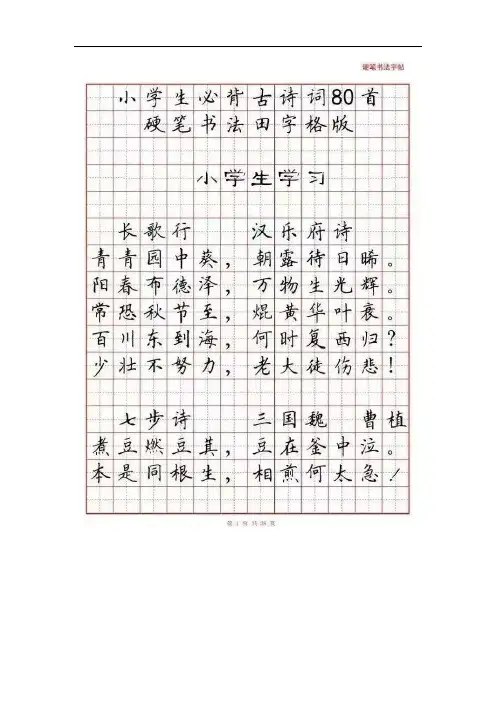 硬笔书法字帖
小学生必背古诗词80首
硬笔书法田字格版
小学生学习
长歌行 汉乐府诗
青青园中葵，朝露待日晞。
阳春布德泽，万物生光辉。
常恐秋节至，焜黄华叶衰。
百川东到海，何时复西归？
少壮不努力，老大徒伤悲！
七步诗 三国魏 曹植
煮豆燃豆萁，豆在釜中泣。
本是同根生，相煎何太急！
第 1 页 共 页